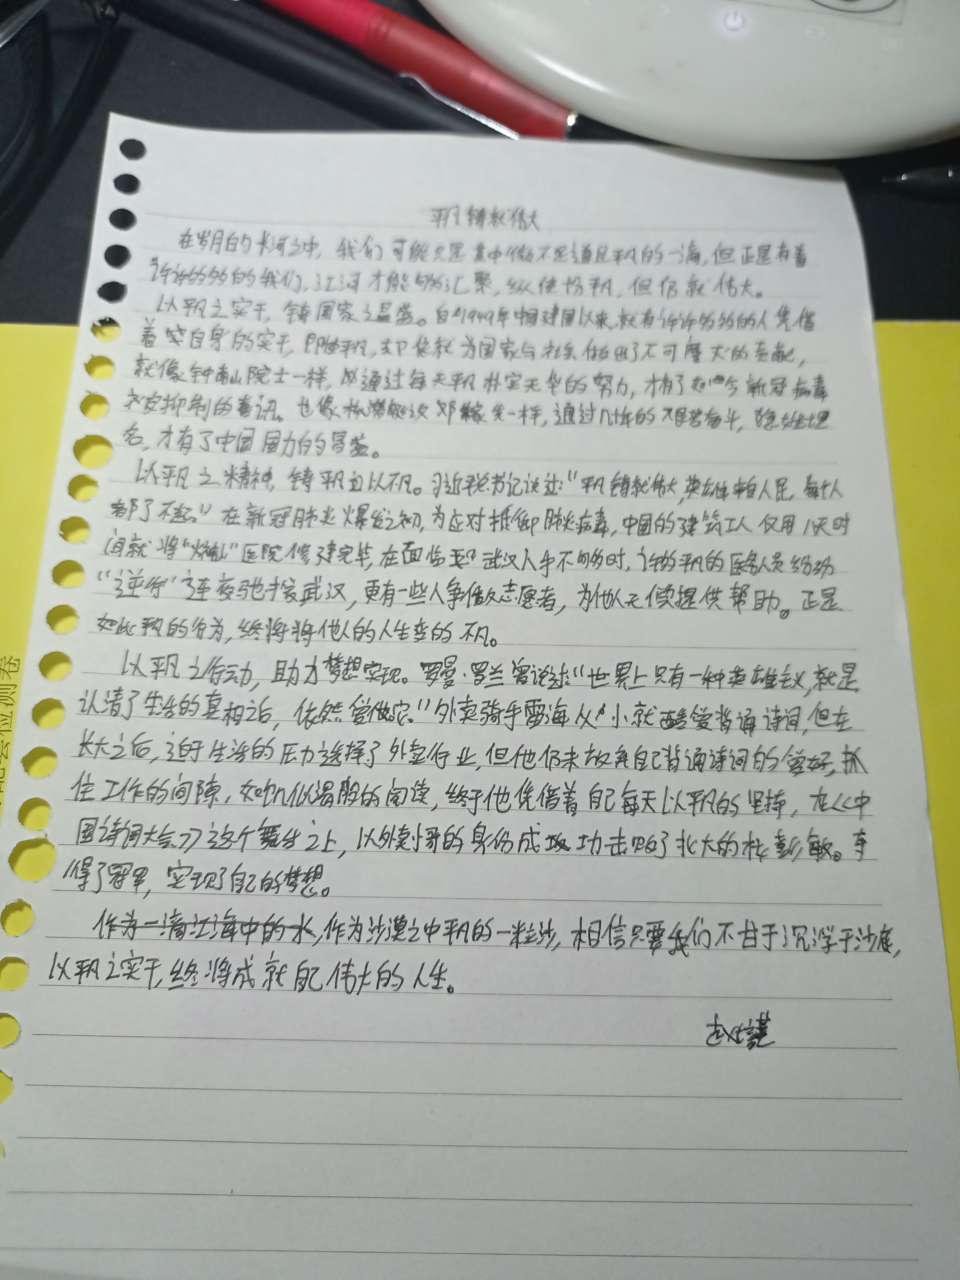 平凡铸就伟大
在岁月的长河之中，我们可能只是其中微不足道且平凡的一滴，但正是有着
许许多多的我们，江河才能够汇聚，纵使平凡，但仍就伟大。
以平凡之实干，铸国家之昌盛。自1949年中国建国以来，就有许许多多的人凭借
着自身的实干，即使平凡，却依就为国家与社会做出了不可磨灭的贡献，
就像钟南山院士一样，通过每天平凡朴实无华的努力，才有了如今新冠病毒
被抑制的喜讯。也像邓稼先一样，通过几十年的艰苦奋斗，隐姓埋
名，才有了中国国力的昌盛。
以平凡之精神，铸平凡以不凡。习近平总书记说过："平凡铸就伟大，英雄来自人民，每个人
都了不起。"在新冠肺炎爆发之初，为应对抵御肺炎病毒，中国的建筑工人仅用10天时
间就将"火神山"医院修建完毕，在面临武汉人手不够时，许多平凡的医务人员纷纷
"逆行"连夜驰援武汉，更有一些人争做志愿者，为他人无偿提供帮助。正是
如此平凡的行为，终将将他人的人生变的不凡。
以平凡之行动，助力梦想实现。罗曼·罗兰曾说过："世界上只有一种英雄主义，就是
认清了生活的真相之后，依然爱做它。"外卖骑手雷海从小就酷爱背诵诗词，但在
长大之后，迫于生活的压力选择了外卖行业，但他仍未放弃自己背诵诗词的爱好，抓
住工作的间隙，如饥似渴般的阅读，终于他凭借着自己每天以平凡的坚持，在《中
国诗词大会》这个舞台之上，以外卖小哥的身份成功击败了北大的彭敏。夺
得了冠军，实现了自己的梦想。
作为一滴江海中的水，作为沙漠之中平凡的一粒沙，相信只要我们不甘于沉浮于沙底，
以平凡之实干，终将成就自己伟大的人生。